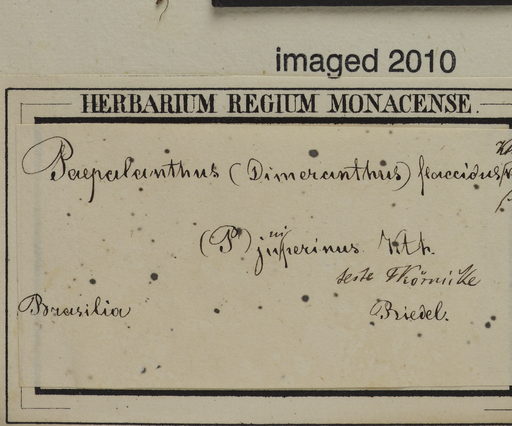 imaged 2010
HERBARIUM REGIUM MONACENSE.
Paepalanthus (Dimeranthus) flaccidus
(P) juniperinus Kth.
teste FKörnicke
Brasilia Riedel.